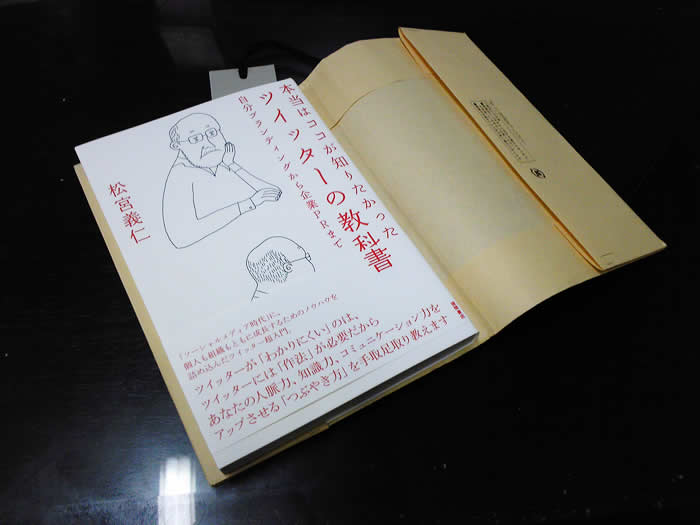 本当はココが知りたかった
ツイッターの教科書
自分ブランディングから企業PRまで
松宮義仁
「ソーシャルメディア時代」に、
個人も組織もともに成長するためのノウハウを
詰め込んだツイッター超入門。
ツイッターが「わかりにくい」のは、
ツイッターには「作法」が必要だから
あなたの人脈力、知識力、コミュニケーション力を
アップさせる「つぶやき方」を手取足取り教えます